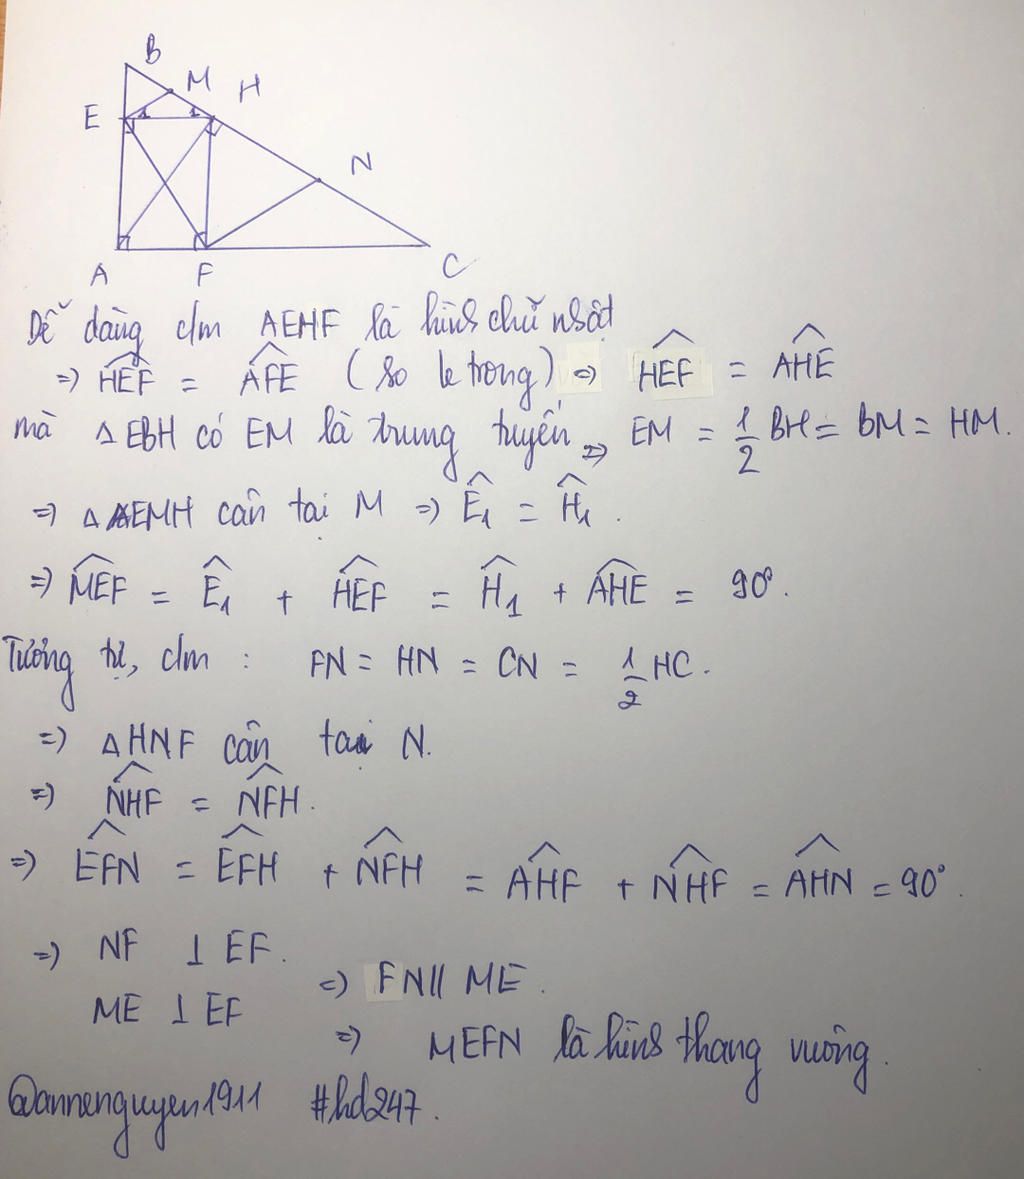 B
M
H
E
1
1
N
A
F
C
Dễ dàng c/m AEHF là hình chữ nhật
=> HEF^ = AFE^ (so le trong) => HEF^ = AHE^
mà ΔEBH có EM là trung tuyến => EM = 1/2 BH = BM = HM.
=> ΔEMH cân tại M => E₁^ = H₁^.
=> MEF^ = E₁^ + HEF^ = H₁^ + AHE^ = 90°.
Tương tự, c/m : FN = HN = CN = 1/2 HC.
=> ΔHNF cân tại N.
=> NHF^ = NFH^.
=> EFN^ = EFH^ + NFH^ = AHF^ + NHF^ = AHN^ = 90°.
=> NF ⊥ EF.
ME ⊥ EF
=> FN // ME.
=> MEFN là hình thang vuông.
@annenguyen1911 #hd247.